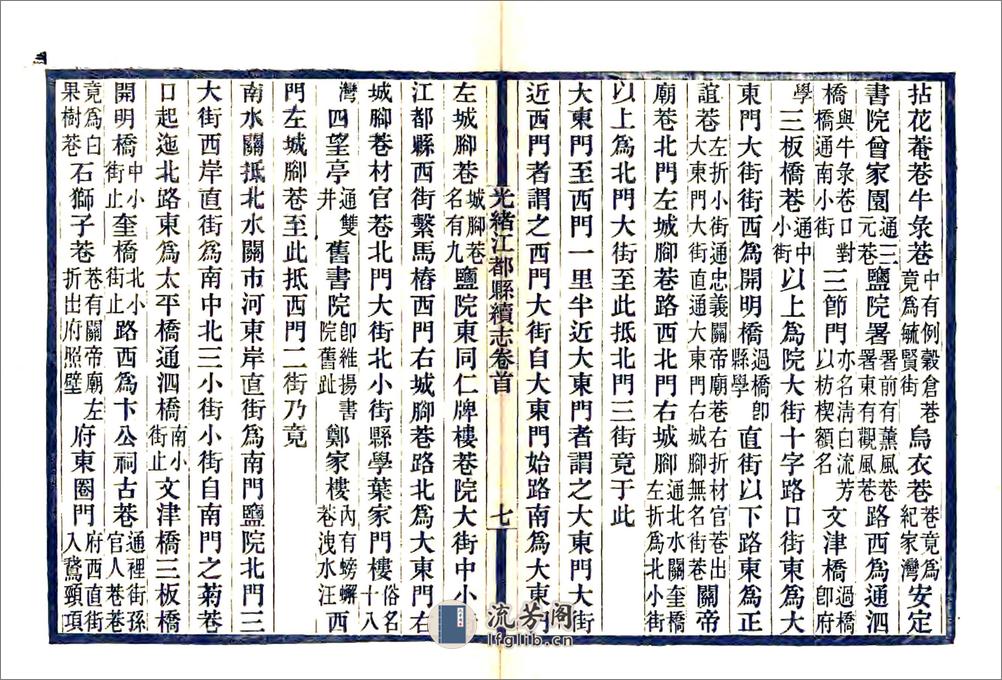 拈花菴巷牛彔巷中有例穀倉巷竟為毓賢街烏衣巷巷竟為紀家灣安定
書院曾家園通三元巷鹽院署署前有薰風巷署東有觀風巷路西為通泗
橋與牛彔巷口對橋通南小街三節門亦名清白流芳以枋楔額名文津橋過橋卽府
學三板橋巷通中小街以上為院大街十字路口街東為大
東門大街街西為開明橋過橋卽縣學直街以下路東為正
誼巷左折小街通忠義關帝廟巷右折材官巷出大東門大街直通大東門右城腳無名街巷關帝
廟巷北門左城腳巷路西北門右城腳通北水關奎橋左折為北小街
以上為北門大街至此抵北門三街竟于此
大東門至西門一里半近大東門者謂之大東門大街
近西門者謂之西門大街自大東門始路南為大東門
光緒江都縣續志卷首 七
左城腳巷城腳巷名有九鹽院東同仁牌樓巷院大街中小
江都縣西街繫馬樁西門右城腳巷路北為大東門右
城腳巷材官巷北門大街北小街縣學葉家門樓俗名十八
灣四望亭通雙井舊書院卽維揚書院舊趾鄭家樓內有螃蠏巷洩水汪西
門左城腳巷至此抵西門二街乃竟
南水關抵北水關市河東岸直街為南門鹽院北門三
大街西岸直街為南中北三小街小街自南門之菊巷
口起迤北路東為太平橋通泗橋南小街止文津橋三板橋
開明橋中小街止奎橋北小街止路西為卞公祠古巷通裡街孫官人巷巷
竟為白果樹巷石獅子巷巷有關帝廟左折出府照壁府東圈門府西直街入鵞頸項
流芳閣
lfglib.com